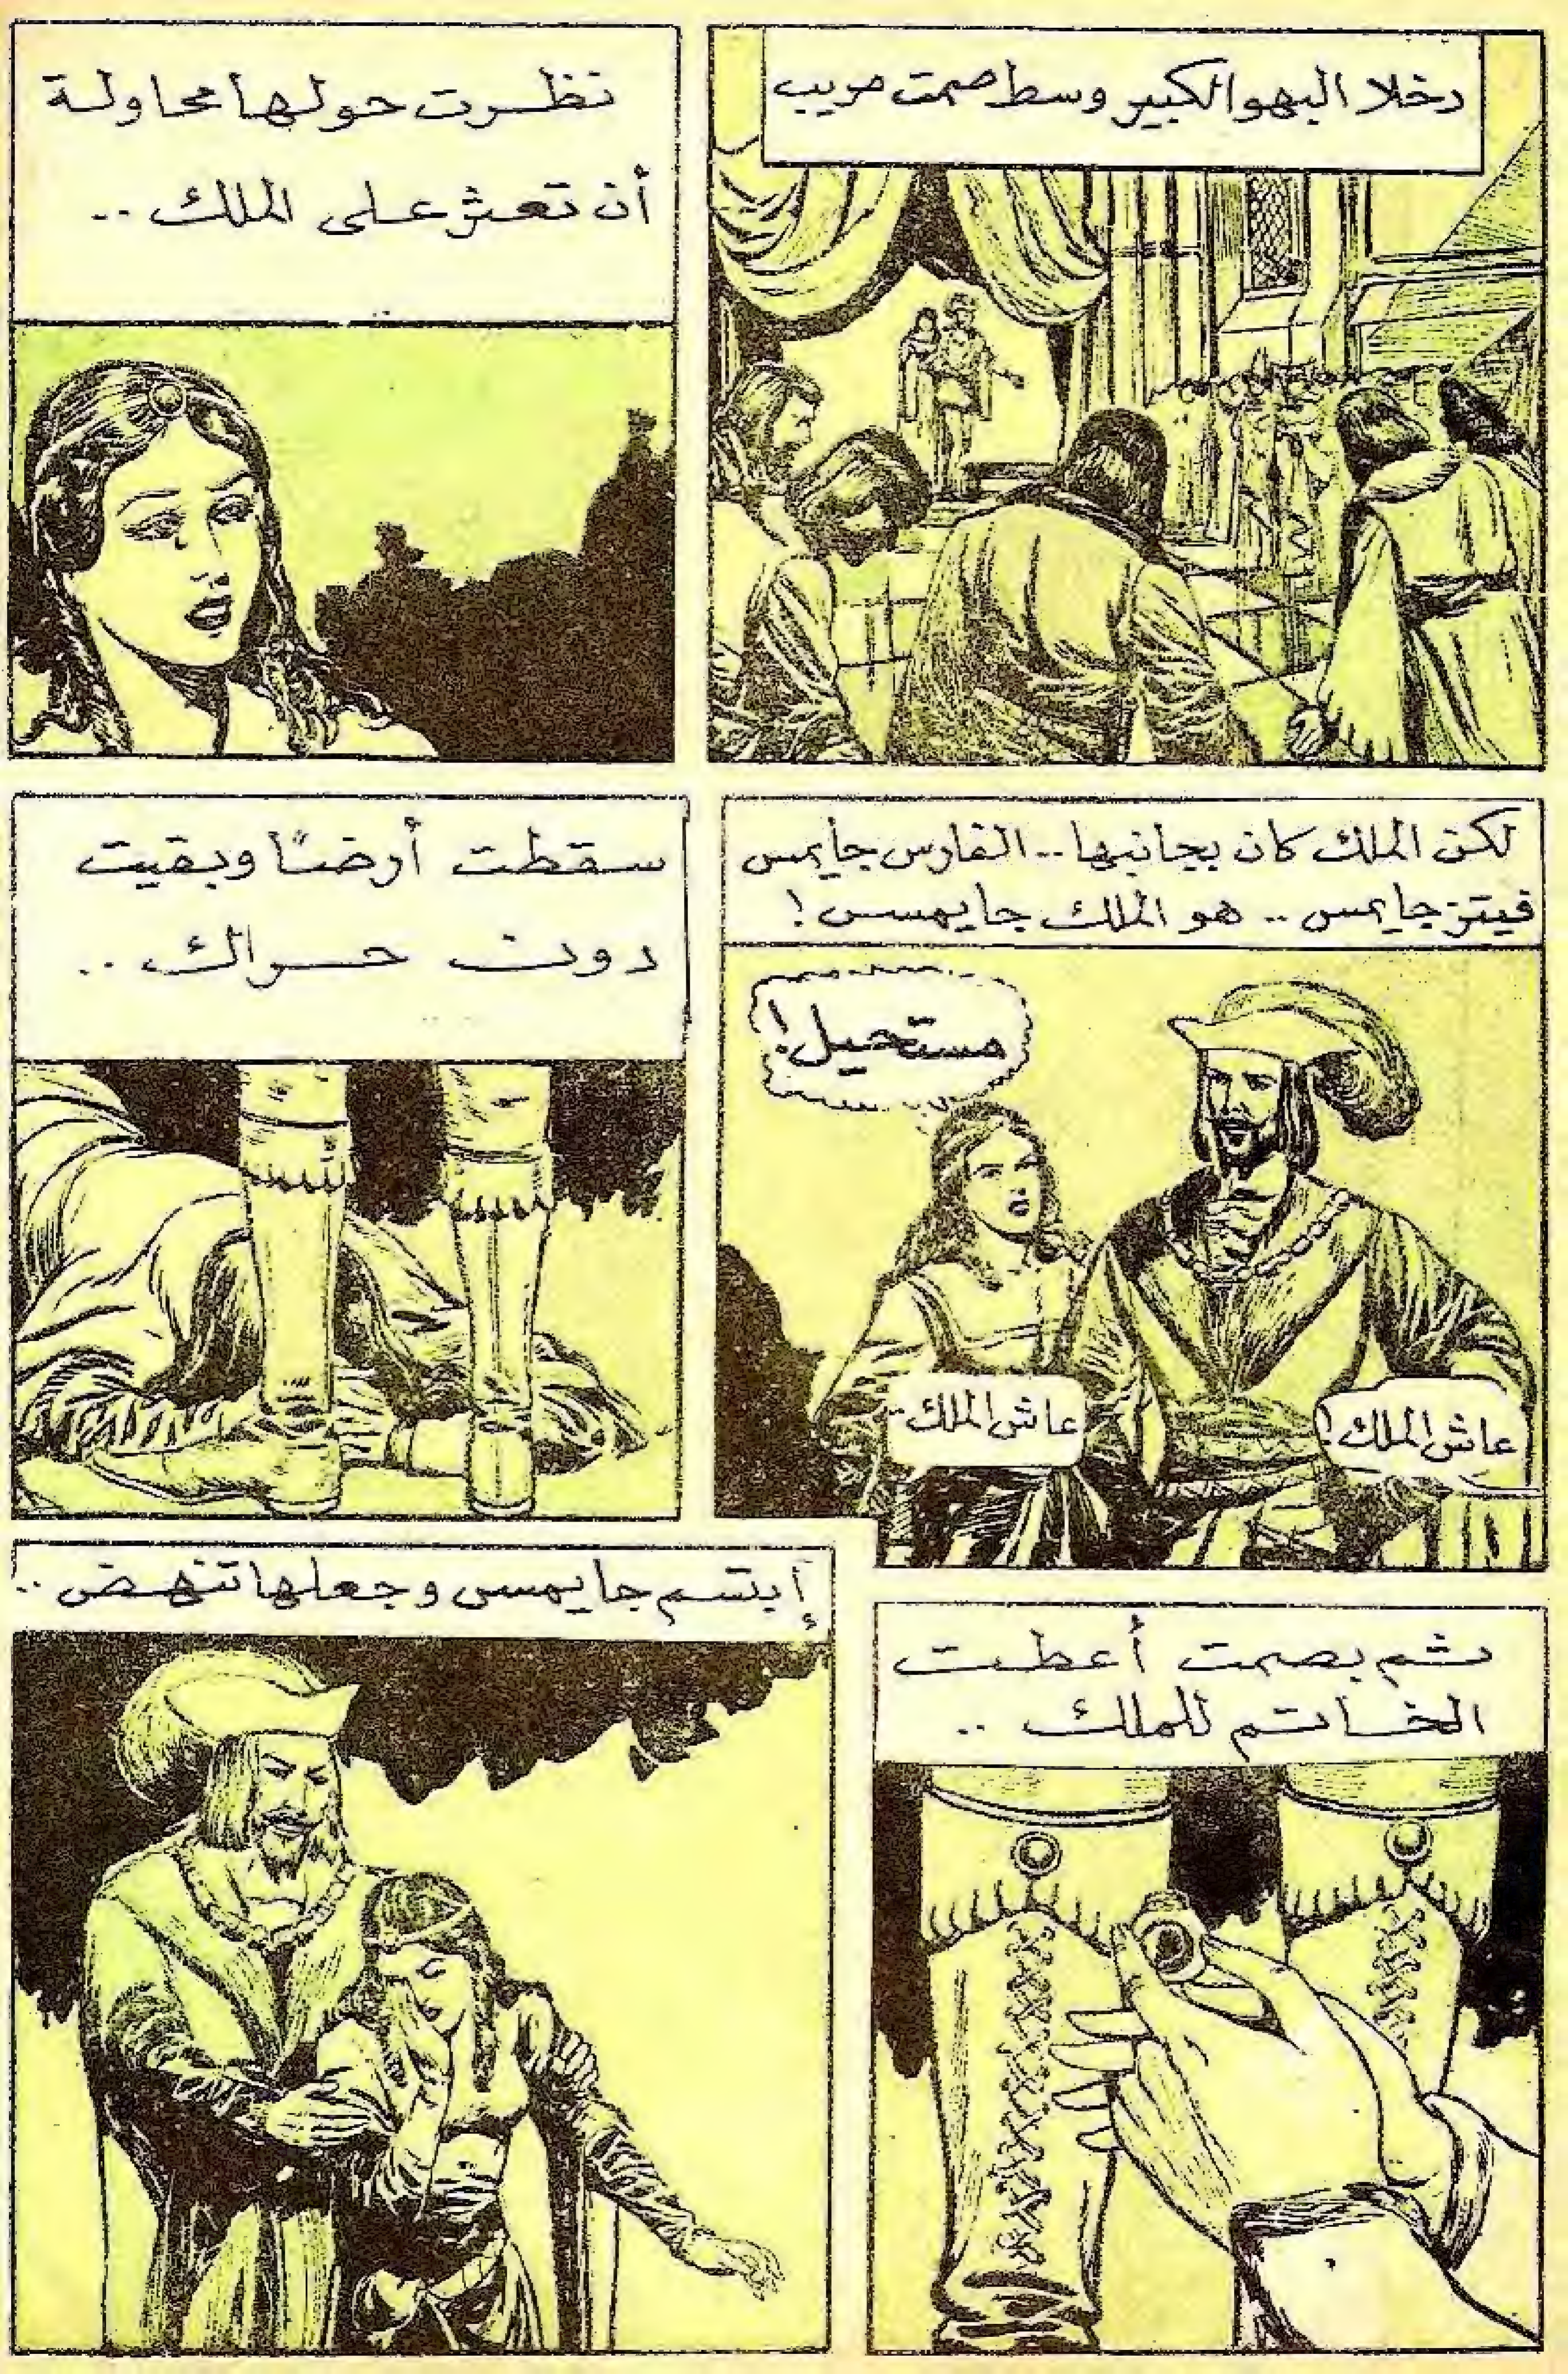 دخلا البهو الكبير وسط صمت مريب
نظرت حولها محاولة
أن تعثر على الملك ..
لكن الملك كان بجانبها .. الفارس جايمس
فيتز جايمس .. هو الملك جايمس !
مستحيل !
عاش الملك !
عاش الملك ..
سقطت أرضاً وبقيت
دون حراك ..
ثم بصمت أعطت
الخاتم للملك ..
إبتسم جايمس وجعلها تنهض ..